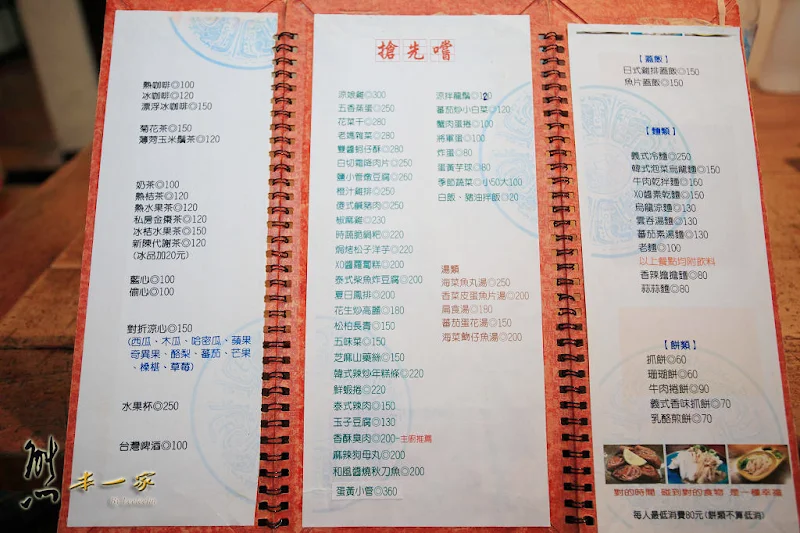 熱咖啡◎100
冰咖啡◎120
漂浮冰咖啡◎150
菊花茶◎150
薄荷玉米鬚茶◎120
奶茶◎100
熱桔茶◎120
熱水果茶◎120
私房金棗茶◎120
冰桔水果茶◎150
新陳代謝茶◎120
(冰品加20元)
藍心◎100
偷心◎100
對折涼心◎150
(西瓜、木瓜、哈密瓜、蘋果
奇異果、酪梨、蕃茄、芒果
、檸檬、草莓)
水果杯◎250
台灣啤酒◎100
搶先嚐
涼娘雞◎300
五香蒸蛋◎250
花菜干◎280
老媽雜菜◎280
雙醬蚵仔酥◎280
白切霜降肉片◎250
鹽小管燉豆腐◎260
橙汁雞排◎250
傻式鹹豬肉◎250
椒麻雞◎230
時蔬鍋粑◎220
焗烤松子洋芋◎220
XO醬蘿蔔糕◎200
泰式柴魚炸豆腐◎200
夏日鳳排◎200
花生炒高麗◎180
松柏長青◎150
五味菜◎150
芝麻山藥絲◎150
韓式辣炒年糕條◎220
鮮蝦捲◎220
泰式辣肉◎150
玉子豆腐◎130
香酥臭肉◎200-主廚推薦
麻辣狗母丸◎200
和風醬燒秋刀魚◎200
蛋黃小管◎360
涼拌龍鬚◎120
蕃茄炒小白菜◎120
蟹肉蛋捲◎100
將軍蛋◎100
炸蛋◎80
蛋黃芋球◎80
季節蔬菜◎小50大100
白飯、豬油拌飯◎20
湯類
海菜魚丸湯◎250
香菜皮蛋魚片湯◎200
扁食湯◎180
蕃茄蛋花湯◎150
海菜魩仔魚湯◎200
【蓋飯】
日式雞排蓋飯◎150
魚片蓋飯◎150
【麵類】
義式冷麵◎250
韓式泡菜烏龍麵◎150
牛肉乾拌麵◎160
XO醬素乾麵◎150
烏龍涼麵◎130
雲吞湯麵◎130
蕃茄素湯麵◎130
老麵◎100
以上餐點均附飲料
香辣擔擔麵◎80
蒜蒜麵◎80
【餅類】
抓餅◎60
珊瑚餅◎60
牛肉捲餅◎90
義式香味抓餅◎70
乳酪煎餅◎70
對的時間 碰到對的食物 是一種幸福
每人最低消費80元(餅類不算低消)
熊本一家